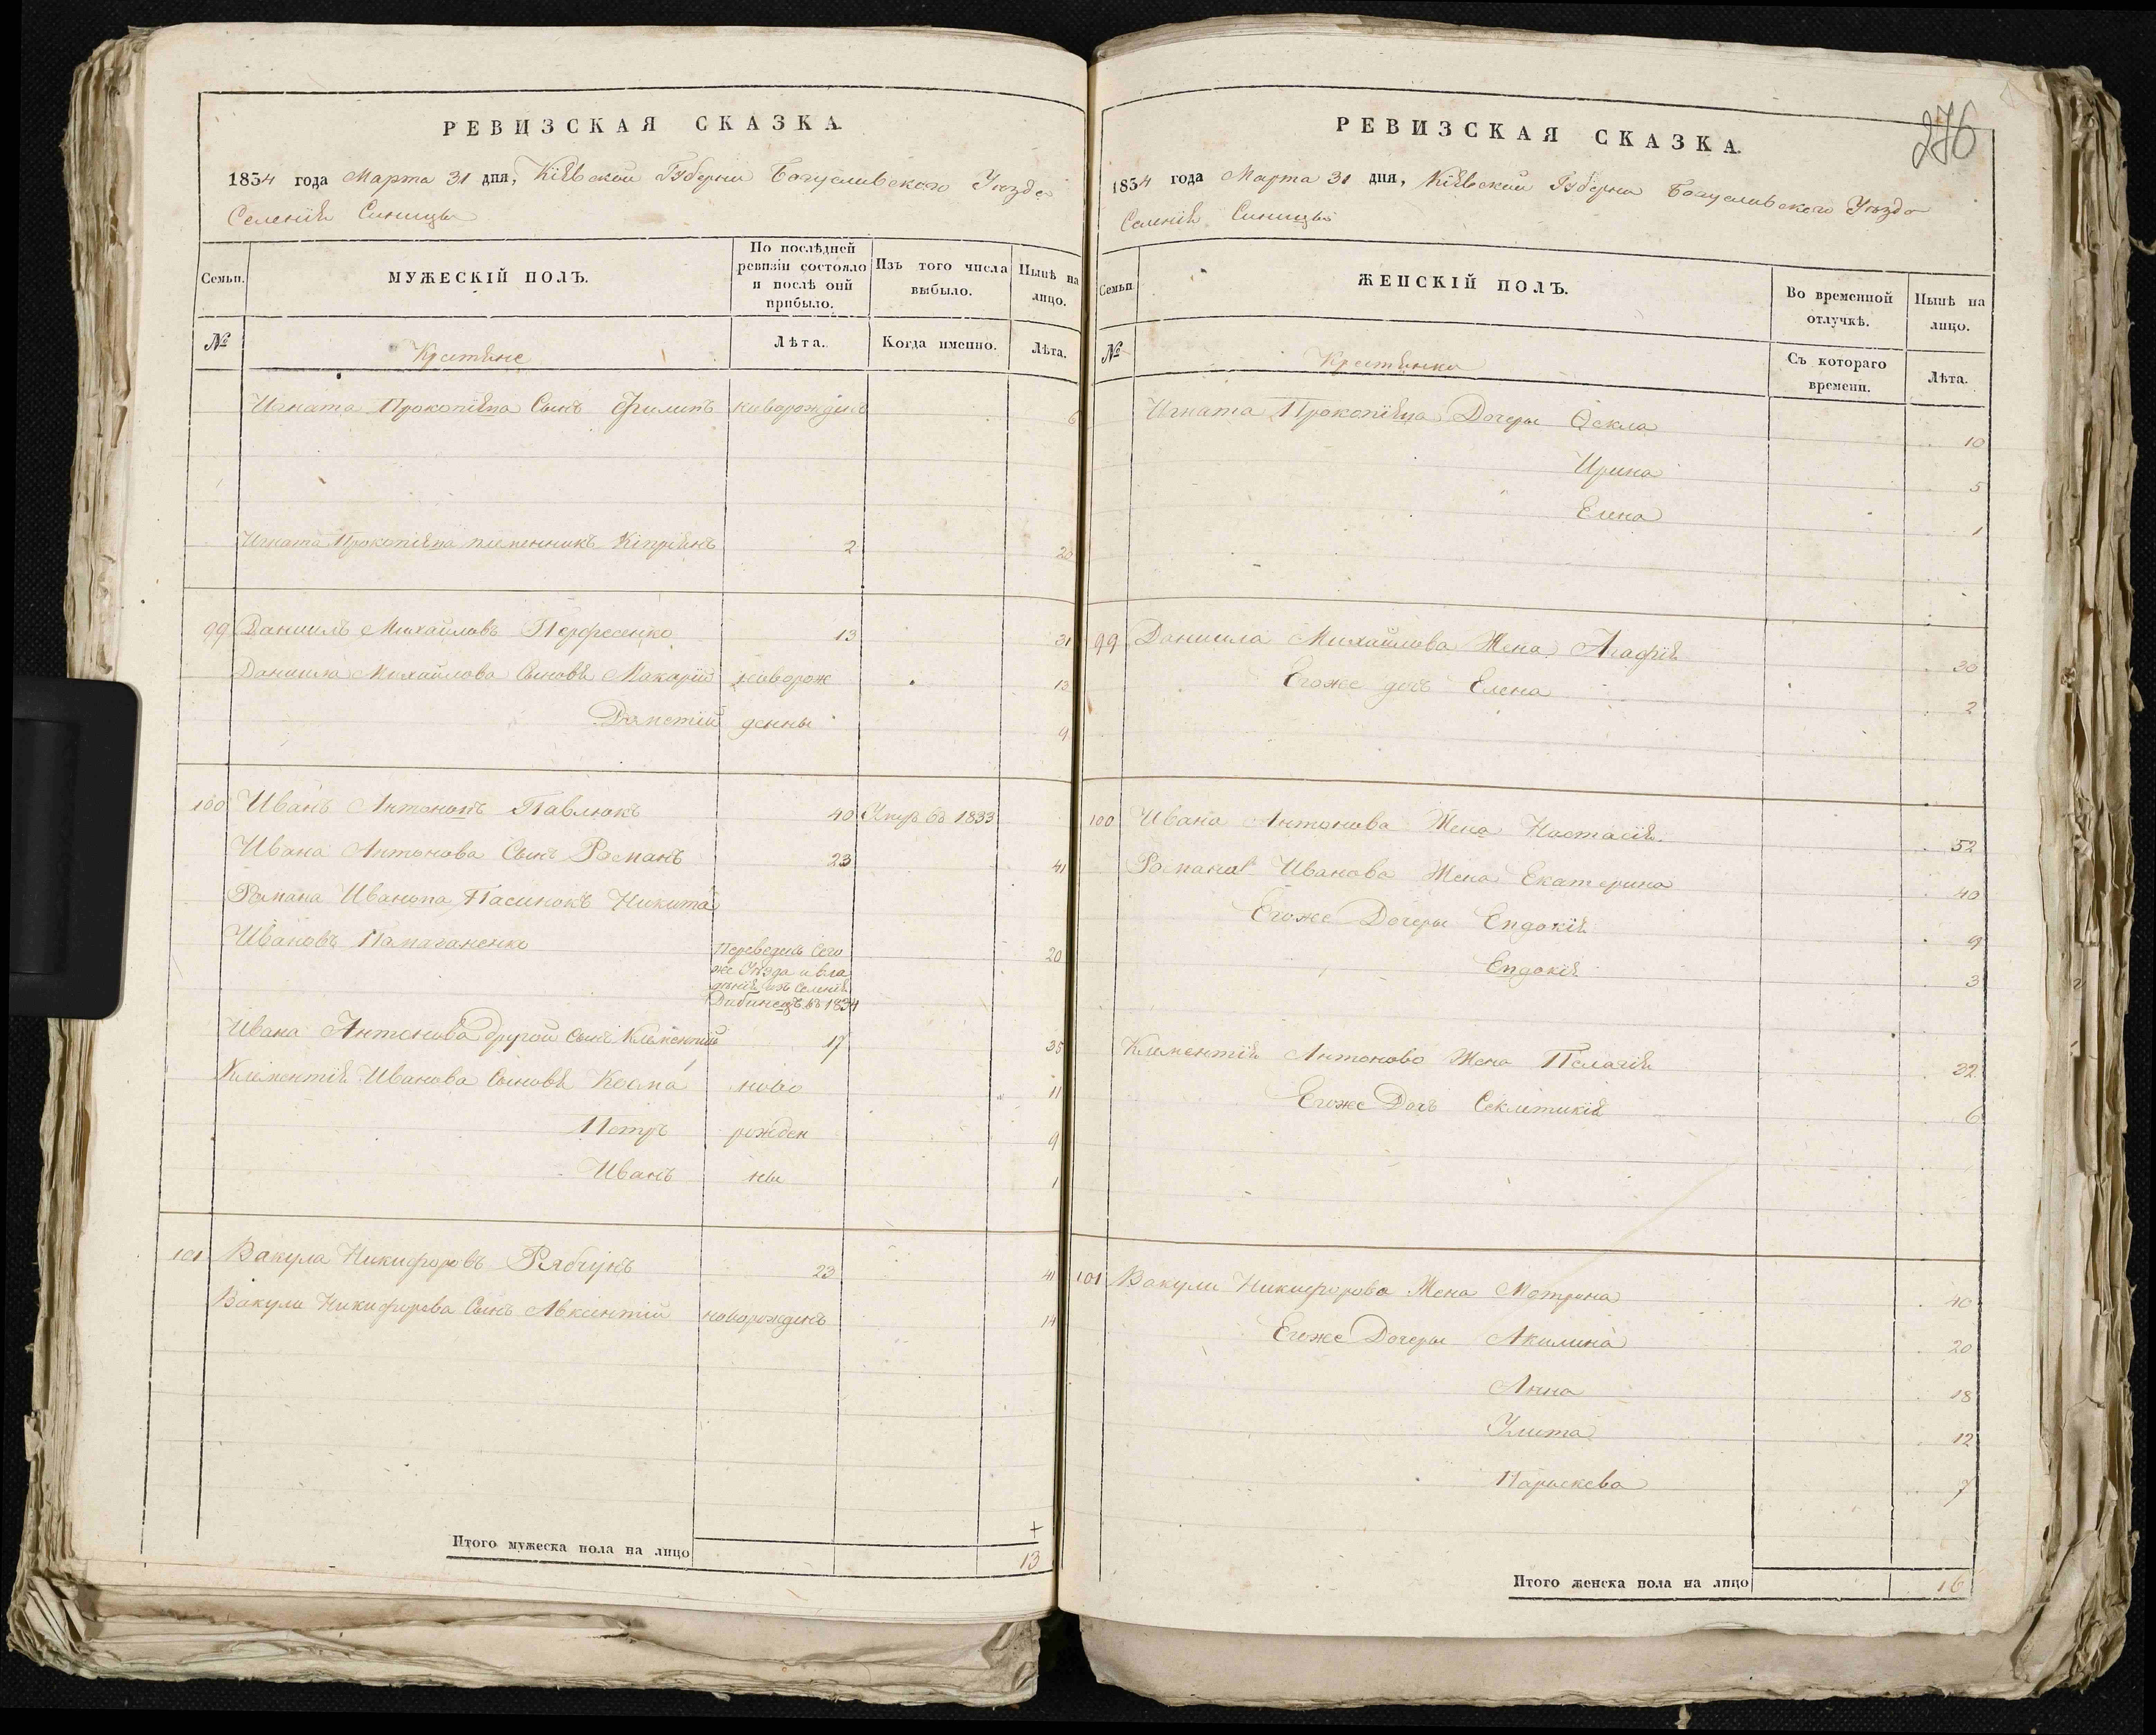 РЕВИЗСКАЯ СКАЗКА.
1834 года Марта 31 дня, Кіѣвской Губерніи Богуславского Уѣзда
Селенія Синицы
Семьи.
МУЖЕСКІЙ ПОЛЪ.
По послѣдней ревизіи состояло и послѣ оній прибыло.
Изъ того числа выбыло.
Нынѣ на лицо.
№
Крестяне
Лѣта.
Когда именно.
Лѣта.
Игната Прокопіева Сынъ Филипъ новорожденъ 6
Игната Прокопіева племенникъ Кіпріянъ 2 20
99 Даниилъ Михайловъ Перфесенко 13 31
Даниила Михайлова Сыновя Макарій новорож 13
Дометій денны 9
100 Иванъ Антоновъ Павлюкъ 40 Умр. въ 1833
Ивана Антонова Сынъ Романъ 23 41
Романа Иванова Пасинокъ Никита
Ивановъ Памаганенко Переведенъ Сего 20
же Уѣзда и вла
дѣнія изъ Селенія
Дибинецъ въ 1834
Ивана Антонова другой Сынъ Клементій 17 35
Климентія Иванова Сыновя Косма ново 11
Петръ рожден 9
Иванъ ны 1
101 Вакула Никифоровъ Рябчунъ 23 41
Вакулы Никифорова Сынъ Авксентій новорожденъ 14
Итого мужеска пола на лицо 13
276
РЕВИЗСКАЯ СКАЗКА.
1834 года Марта 31 дня, Кіѣвской Губерніи Богуславского Уѣзда
Селенія Синицы
Семьи.
ЖЕНСКІЙ ПОЛЪ.
Во временной отлучкѣ.
Нынѣ на лицо.
№
Крестянки
Съ котораго времени.
Лѣта.
Игната Прокопіева Дочеры Ѳекла 10
Ирина 5
Елена 1
99 Даниила Михайлова Жена Агафія 30
Егоже дочь Елена 2
100 Ивана Антонова Жена Настасія 52
Романа Иванова Жена Екатерина 40
Егоже Дочеры Евдокія 9
Евдокія 3
Клементія Антонова Жена Пелагія 32
Егоже Дочъ Секлетикія 6
101 Вакулы Никифорова Жена Мотрона 40
Егоже Дочеры Акилина 20
Анна 18
Улита 12
Параскева 7
Итого женска пола на лицо 16